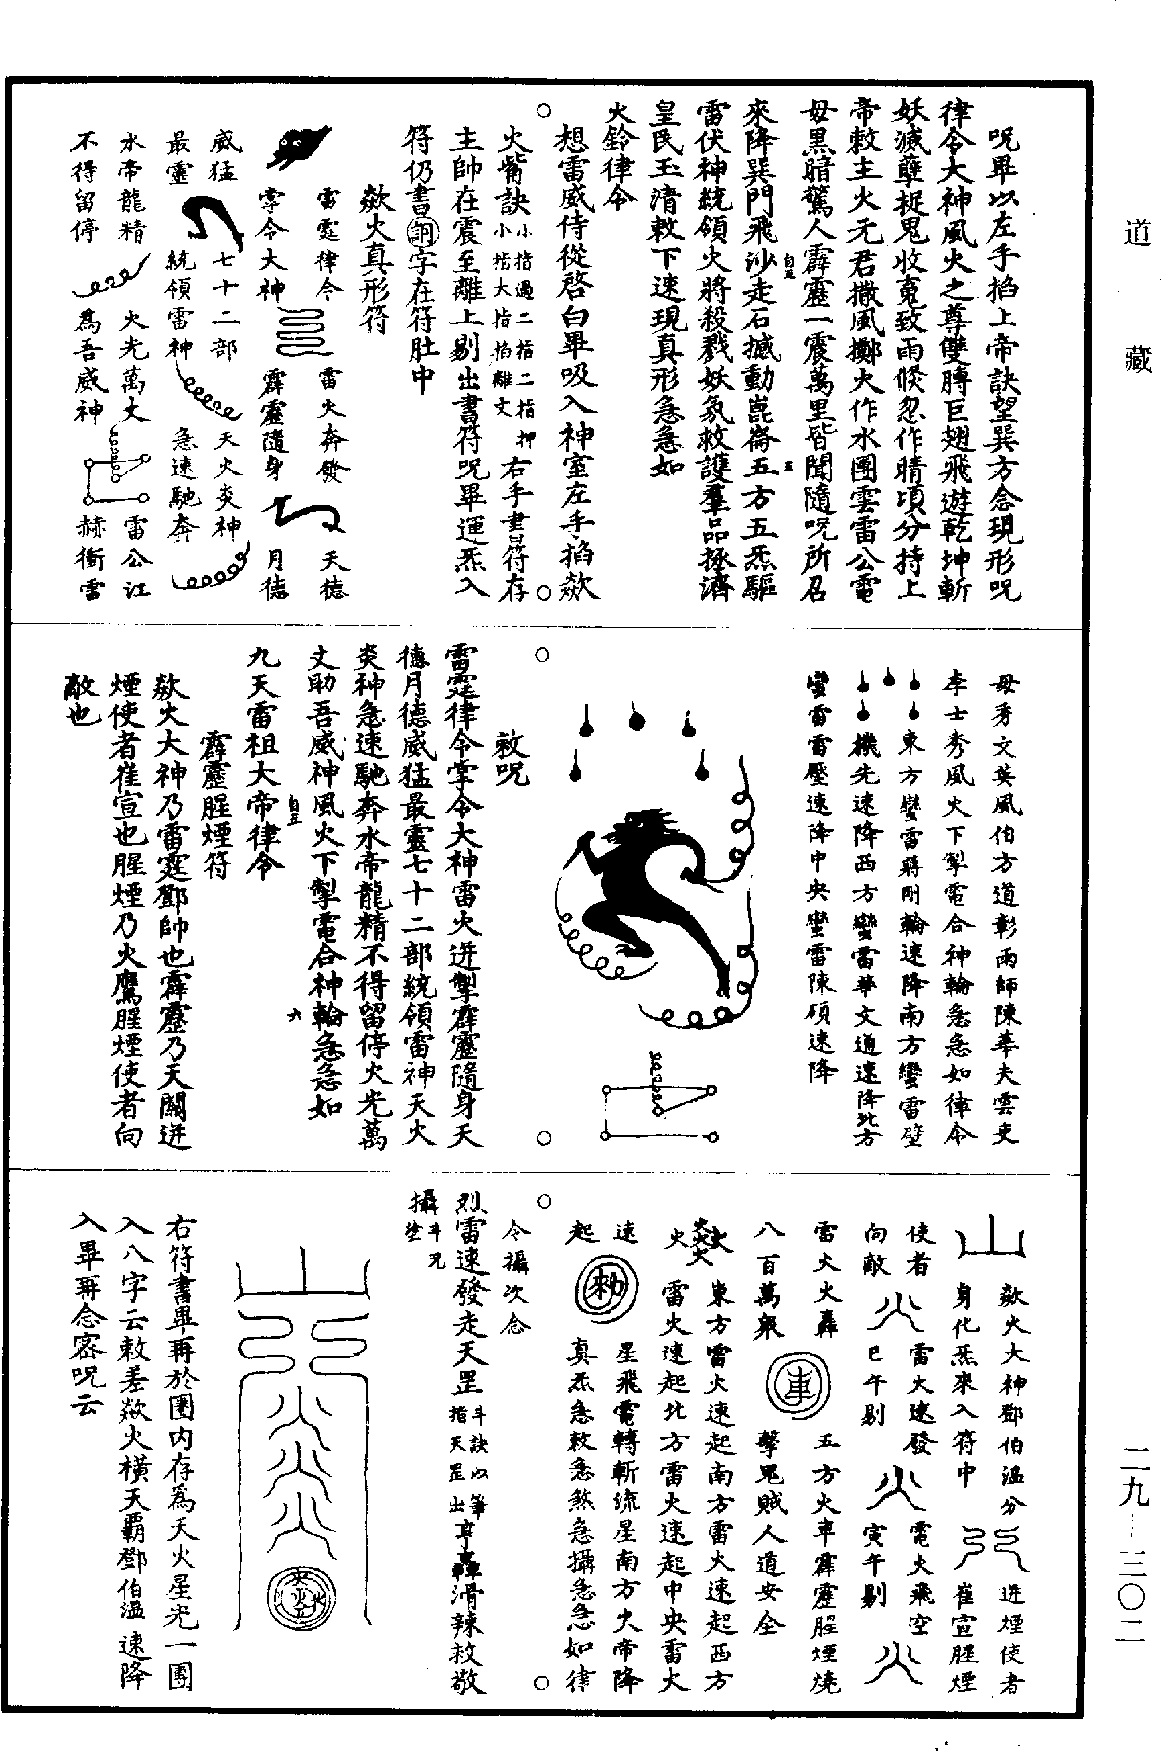 道藏
二九—三〇二
呪畢以左手掐上帝訣望巽方念現形呪
律令大神風火之尊雙膊巨翅飛遊乾坤斬
妖滅孽捉鬼收䰟致雨倐忽作晴項分持上
帝敕主火无君撒風擲火作水團雲雷公電
母黑暗驚人霹靂一震萬里皆聞隨呪所召
來降巽門飛沙走石撼動崑崙五方五炁驅
雷伏神統領火將殺戮妖氛救護羣品拯濟
皇民玉清敕下速現真形急急如
火鈴律令
想雷威侍從啓白畢吸入神室左手掐歘
火觜訣小指過二指二指押小指大指掐離文右手書符存
主帥在震至離上剔出書符呪畢運炁入
符仍書字在符肚中
歘火真形符
雷霆律令 雷火奔發 天德
掌令大神 霹靂隨身 月德
威猛 七十二部 天火炎神
最靈 統領雷神 急速馳奔
水帝龍精 火光萬丈 雷公江
不得留停 為吾威神 赫衝雷
母秀文英風伯方道彰雨師陳華夫雲吏
李士秀風火下掣電合神輪急急如律令
東方蠻雷蔣剛輪速降南方蠻雷壁
機先速降西方蠻雷華文通速降北方
蠻雷雷壓速降中央蠻雷陳碩速降
敕呪
雷霆律令掌令大神雷火迸掣霹靂隨身天
德月德威猛最靈七十二部統領雷神天火
炎神急速馳奔水帝龍精不得留停火光萬
丈助吾威神風火下掣電合神輪急急如
九天雷祖大帝律令
霹靂腥煙符
歘火大神乃雷霆鄧帥也霹靂乃天關迸
煙使者崔宣也腥煙乃火鷹腥煙使者向
敵也
歘火大神鄧伯溫分 迸煙使者
身化炁來入符中 崔宣腥煙
使者 雷火速發 電火飛空
向敵 巳午剔 寅午剔
雷火火轟 五方火車霹靂腥煙燒
八百萬衆 車 擊鬼賊人道安全
火火火火 東方雷火速起南方雷火速起西方
雷火速起北方雷火速起中央雷火
速 星飛電轉斬流星南方火帝降
起 敕 真炁急敕急煞急攝急急如律
令攝次念
烈雷速發走天罡斗訣以筆指天罡出亨轟滑辣敕敬
攝斗咒塗
右符書畢再於圈内存為天火星光一團
入八字云敕差歘火橫天霸鄧伯溫速降
入畢再念密呪云